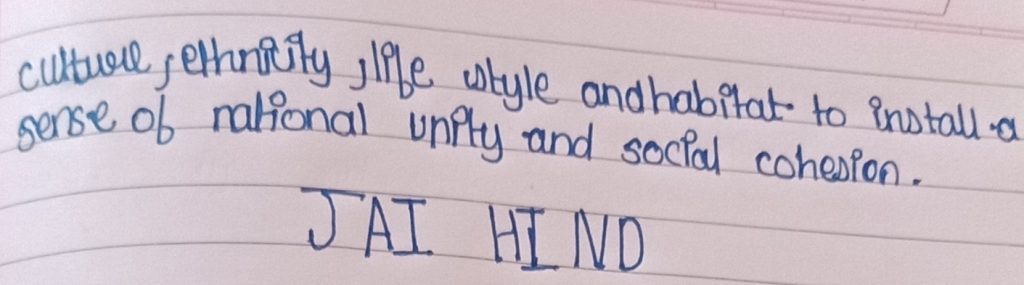 culture, ethnicity, life style and habitat to install a
sense of national unity and social cohesion.
JAI HIND